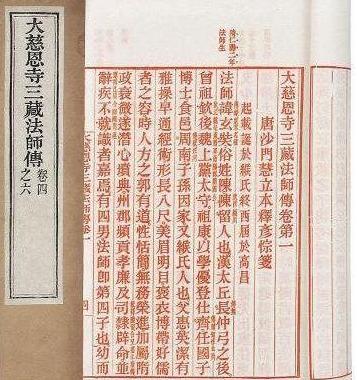 大慈恩寺三藏法師傳卷第一
唐沙門慧立本釋彥悰箋
起載誕於緱氏終西屆於高昌
隋仁壽二年
法師生
法師諱玄奘俗姓陳陳留人也漢太丘長仲弓之後
曾祖欽後魏上黨太守祖康以學優登仕齊任國子
博士食邑周南子孫因家又緱氏人也父惠英潔有
雅操早通經術形長八尺美眉明目裒衣博帶好儒
者之容時人方之郭有道性恬簡無務榮進加屬隋
政衰微遂潛心墳典州郡頻貢孝廉及司隸辟命並
辭疾不就識者嘉焉有四男法師即第四子也幼而
大慈恩寺三藏法師傳卷一
四
大慈恩寺三藏法師傳
卷四
之六